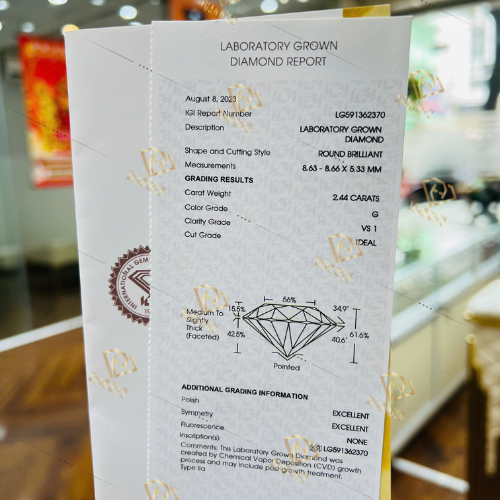 LABORATORY GROWN
DIAMOND REPORT
August 8, 2023
IGI Report Number LG591362370
Description LABORATORY GROWN
DIAMOND
Shape and Cutting Style ROUND BRILLIANT
Measurements 8.63 - 8.66 X 5.33 MM
GRADING RESULTS
Carat Weight 2.44 CARATS
Color Grade G
Clarity Grade VS 1
Cut Grade IDEAL
INTERNATIONAL GEM
56%
15.5% 34.9°
Medium To
Slightly
Thick
(Faceted)
42.5% 40.6° 61.6%
Pointed
ADDITIONAL GRADING INFORMATION
Polish EXCELLENT
Symmetry EXCELLENT
Fluorescence NONE
Inscription(s) LG591362370
Comments: This Laboratory Grown Diamond was
created by Chemical Vapor Deposition (CVD) growth
process and may include post growth treatment.
Type IIa